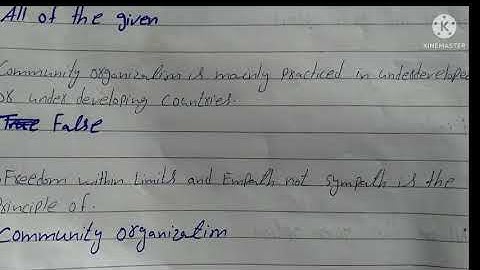 All of the given
KINEMASTER
Community organization is mainly practiced in underdevelope
or under developing countries.
True False
Freedom within limits and Empath not sympath is the
Principle of.
Community organization